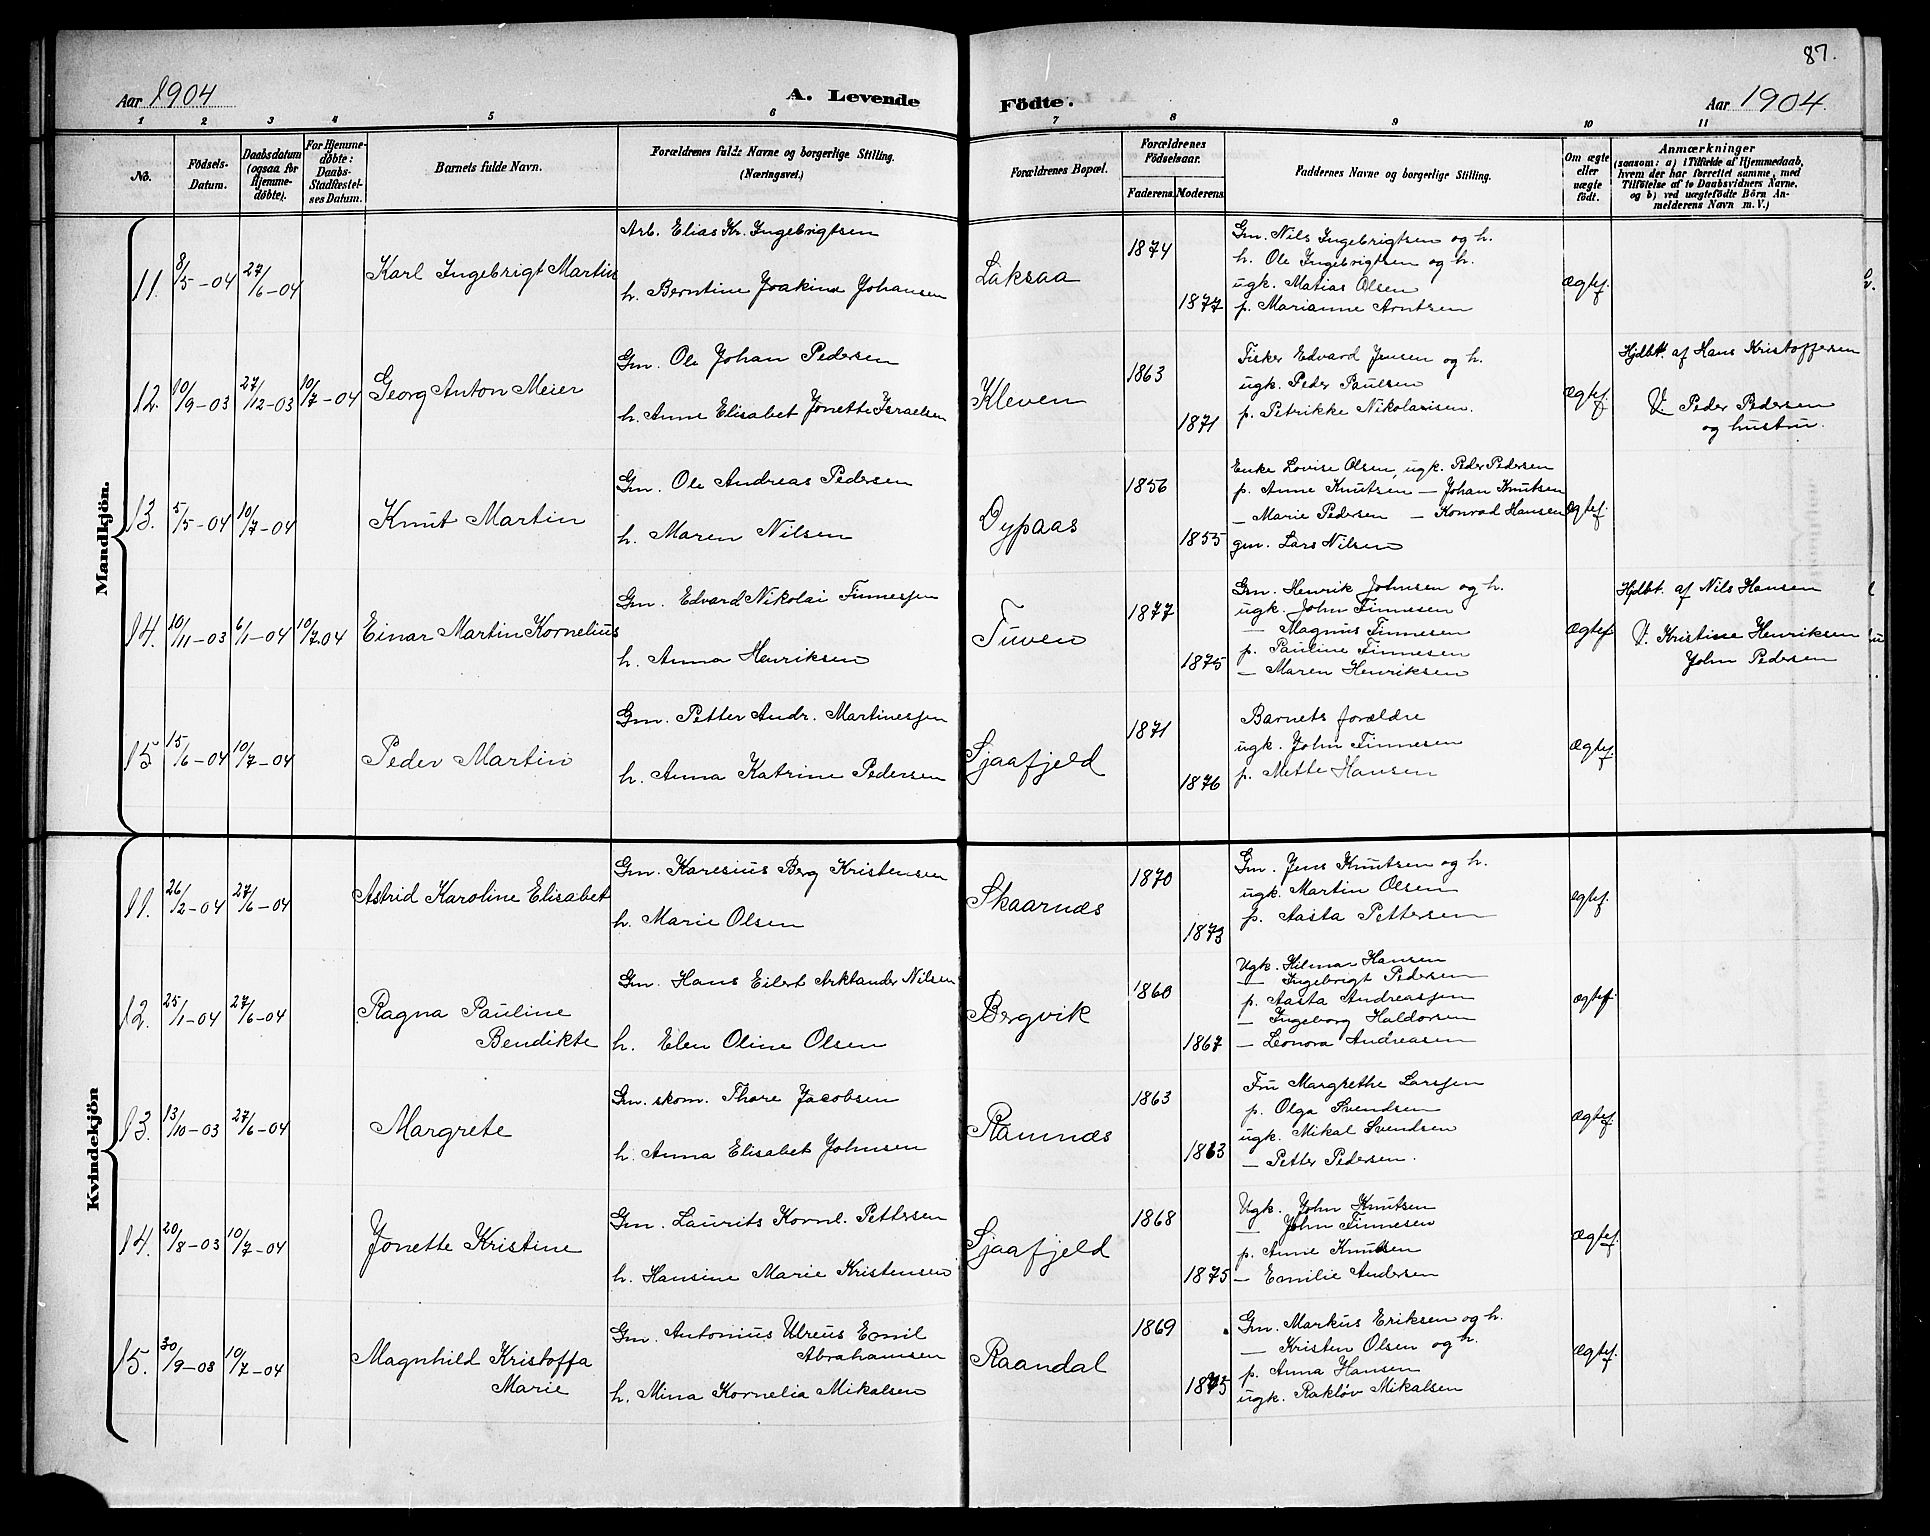 87.
Aar 1904
A. Levende
Födte.
Aar 1904.
1 2 3 4 5 6 7 8 9 10 11
No.
Födsels-
Datum.
Daabsdatum
(ogsaa for
Hjemme-
døbte).
For Hjemme-
døbte:
Daabs-
Stadfæstel-
ses Datum.
Barnets fulde Navn.
Forældrenes fulde Navne og borgerlige Stilling.
(Næringsvei.)
Forældrenes Bopæl.
Forældrenes
Födselsaar.
Faderens.
Moderens.
Faddernes Navne og borgerlige Stilling.
Om ægte
eller
uægte
födt.
Anmærkninger
(saasom: a) i Tilfælde af Hjemmedaab,
hvem der har forrettet samme, med
Tilföielse af to Daabsvidners Navne,
og b) ved uægtefödte Börn An-
melderens Navn m. V.)
Mandkjön.
11. 8/5-04 27/6-04
Karl Ingebrigt Martin
Arb. Elias Kr. Ingebrigtsen
h. Berntine Joakina Johansen
Laksaa
1874
1877
Gm. Nils Ingebrigtsen og h.
h. Ole Ingebrigtsen og h.
ugk. Matias Olsen
p. Marianne Arntsen
Ægtef.
12. 10/9-03 27/12-03 10/7-04
Georg Anton Meier
Gm. Ole Johan Pedersen
h. Anne Elisabet Jonette Israelsen
Kleven
1863
1871
Fisker Edvard Jensen og h.
ugk. Peder Paulsen
p. Petrikke Nikolaisen.
Ægtef.
Hjdbt. af Hans Kristoffersen
V. Peder Pedersen
og hustru.
13. 5/5-04 10/7-04
Knut Martin
Gm. Ole Andreas Pedersen
h. Maren Nilsen
Oypaas
1856
1855
Enke Lovise Olsen, ugk. Peder Pedersen
p. Anne Knutsen — Johan Knutsen
— Marie Pedersen — Konrad Hansen
gm. Lars Nilsen
Ægtef.
14. 10/11-03 6/1-04 10/7 04
Einar Martin Kornelius
Gm. Edvard Nikolai Finnesjen
h. Anna Henriksen
Tuven
1877
1875
Gm. Henrik Johnsen og h.
ugk. John Finnesen
— Magnus Finnesen
p. Pauline Finnesen
— Maren Henriksen
Ægtef.
Hjdbt. af Nils Hansen
V. Kristine Henriksen
John Pedersen
15 15/6-04 10/7-04
Peder Martin
Gm. Petter Andr. Martinesjen
h. Anna Katrine Pedersen
Sjaafjeld
1871
1876
Barnets forældre
ugk. John Finnesen
p. Mette Hansen
Ægtef.
Kvindekjön
11. 26/2-04 27/6-04
Astrid Karoline Elisabet
Gm. Karesius Berg Kristensen
h. Marie Olsen
Skaarnæs
1870
1873
Gm. Jens Knutsen og h.
ugk. Martin Olsen
p. Aasta Pettersen
Ægtef.
12. 25/1-04 27/6-04
Ragna Pauline
Bendikte
Gm. Hans Eilert Arktander Nilsen
h. Elen Oline Olsen
Bergvik
1860
1867
Ugk. Hilmar Hansen
— Ingebrigt Pedersen
p. Aasta Andreassen
— Ingeborg Haldorsen
— Leonora Andreasen
Ægtef.
13. 13/10-03 27/6-04
Margrete
Gm. skom. Thore Jacobsen
h. Anna Elisabet Johnsen
Ramnæs
1863
1863
Fru Margrethe Larssen
p. Olga Svendsen
ugk. Mikal Svendsen
— Petter Pedersen.
Ægtef.
14. 20/8-03 10/7-04
Jonette Kristine
Gm. Laurits Kornl. Pettersen
h. Hansine Marie Kristensen
Sjaafjeld
1868
1875
Ugk. John Knutsen
— John Finnesen
p. Anne Knudsen
— Emilie Andersen
Ægtef.
15. 30/9-03 10/7-04
Magnhild Kristoffa
Marie
Gm. Antonius Ulreus Emil
Abrahamsen
h. Mina Kornelia Mikalsen
Raandal
1869
1875
Gm. Markus Eriksen og h.
— Kristen Olsen og h.
p. Anna Hansen
ugk. Rakløv Mikalsen
Ægtef.